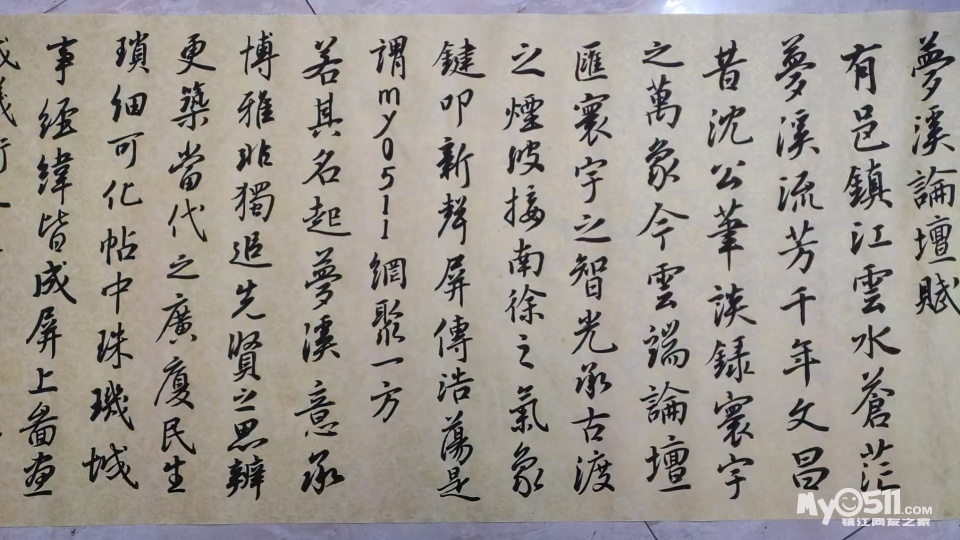 夢溪論壇賦
有邑鎮江雲水蒼茫
夢溪流芳千年文昌
昔沈公筆談録寰宇
之萬象今雲端論壇
匯寰宇之智光承古渡
之煙波接南徐之氣象
鍵叩新聲屏傳浩蕩是
謂my0511網聚一方
若其名起夢溪意承
博雅非獨追先賢之思辨
更築當代之廣廈民生
瑣細可化帖中珠璣城
事經緯皆成屏上畫卷
My0511.COM
镇江网友之家